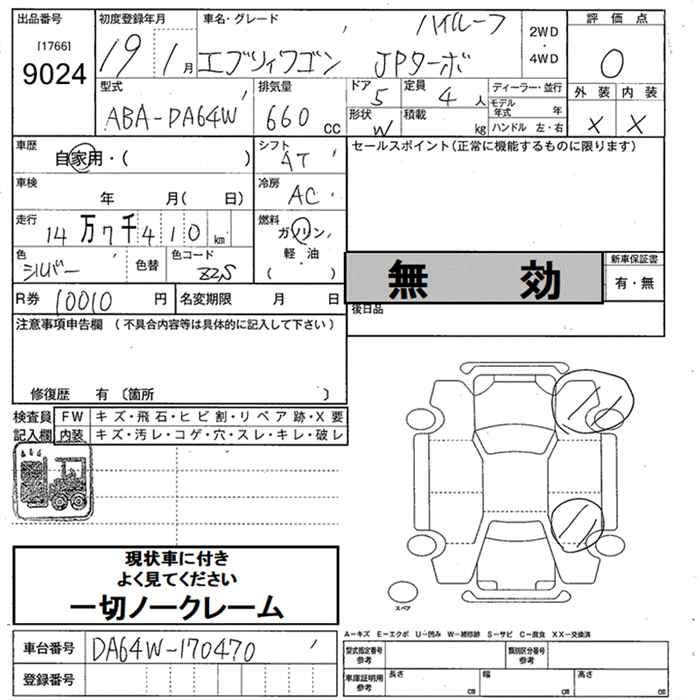 出品番号 初度登録年月 車名・グレード ハイルーフ 2WD ・ 4WD 評価点
[1766]
9024 19 1月 エブリィワゴン JPターボ 0
型式 排気量 ドア 定員 ディーラー・並行 外装 内装
ABA-DA64W 660 cc 5 4人 モデル年式 年
形状 W 積載 kg ハンドル 左・右 X X
車歴 シフト セールスポイント(正常に機能するものに限ります)
自家用・( ) AT
車検 年 月( 日) 冷房 AC
走行 14万7千410km 燃料 ガソリン
軽油
( )
色 シルバー 色替 色コード Z2S
無効 新車保証書
有・無
R券 10010円 名変期限 月 日 後日品
注意事項申告欄(不具合内容等は具体的に記入して下さい)
修復歴 有〔箇所 〕
検査員 FW キズ・飛石・ヒビ割・リペア跡・X要
記入欄 内装 キズ・汚レ・コゲ・穴・スレ・キレ・破レ
現状車に付き
よく見てください
一切ノークレーム
スペア
A-キズ E-エクボ U-凹み W-補修跡 S-サビ C-腐食 XX-交換済
車台番号 DA64W-170470 型式指定番号 参考 類別区分番号 参考
登録番号 車庫証明用 参考 長さ cm 幅 cm 高さ cm